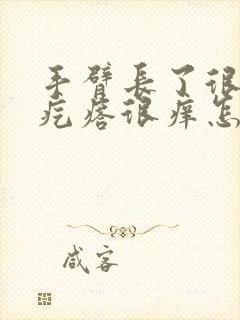 手臂長了很
疙瘩很痒怎
咸客